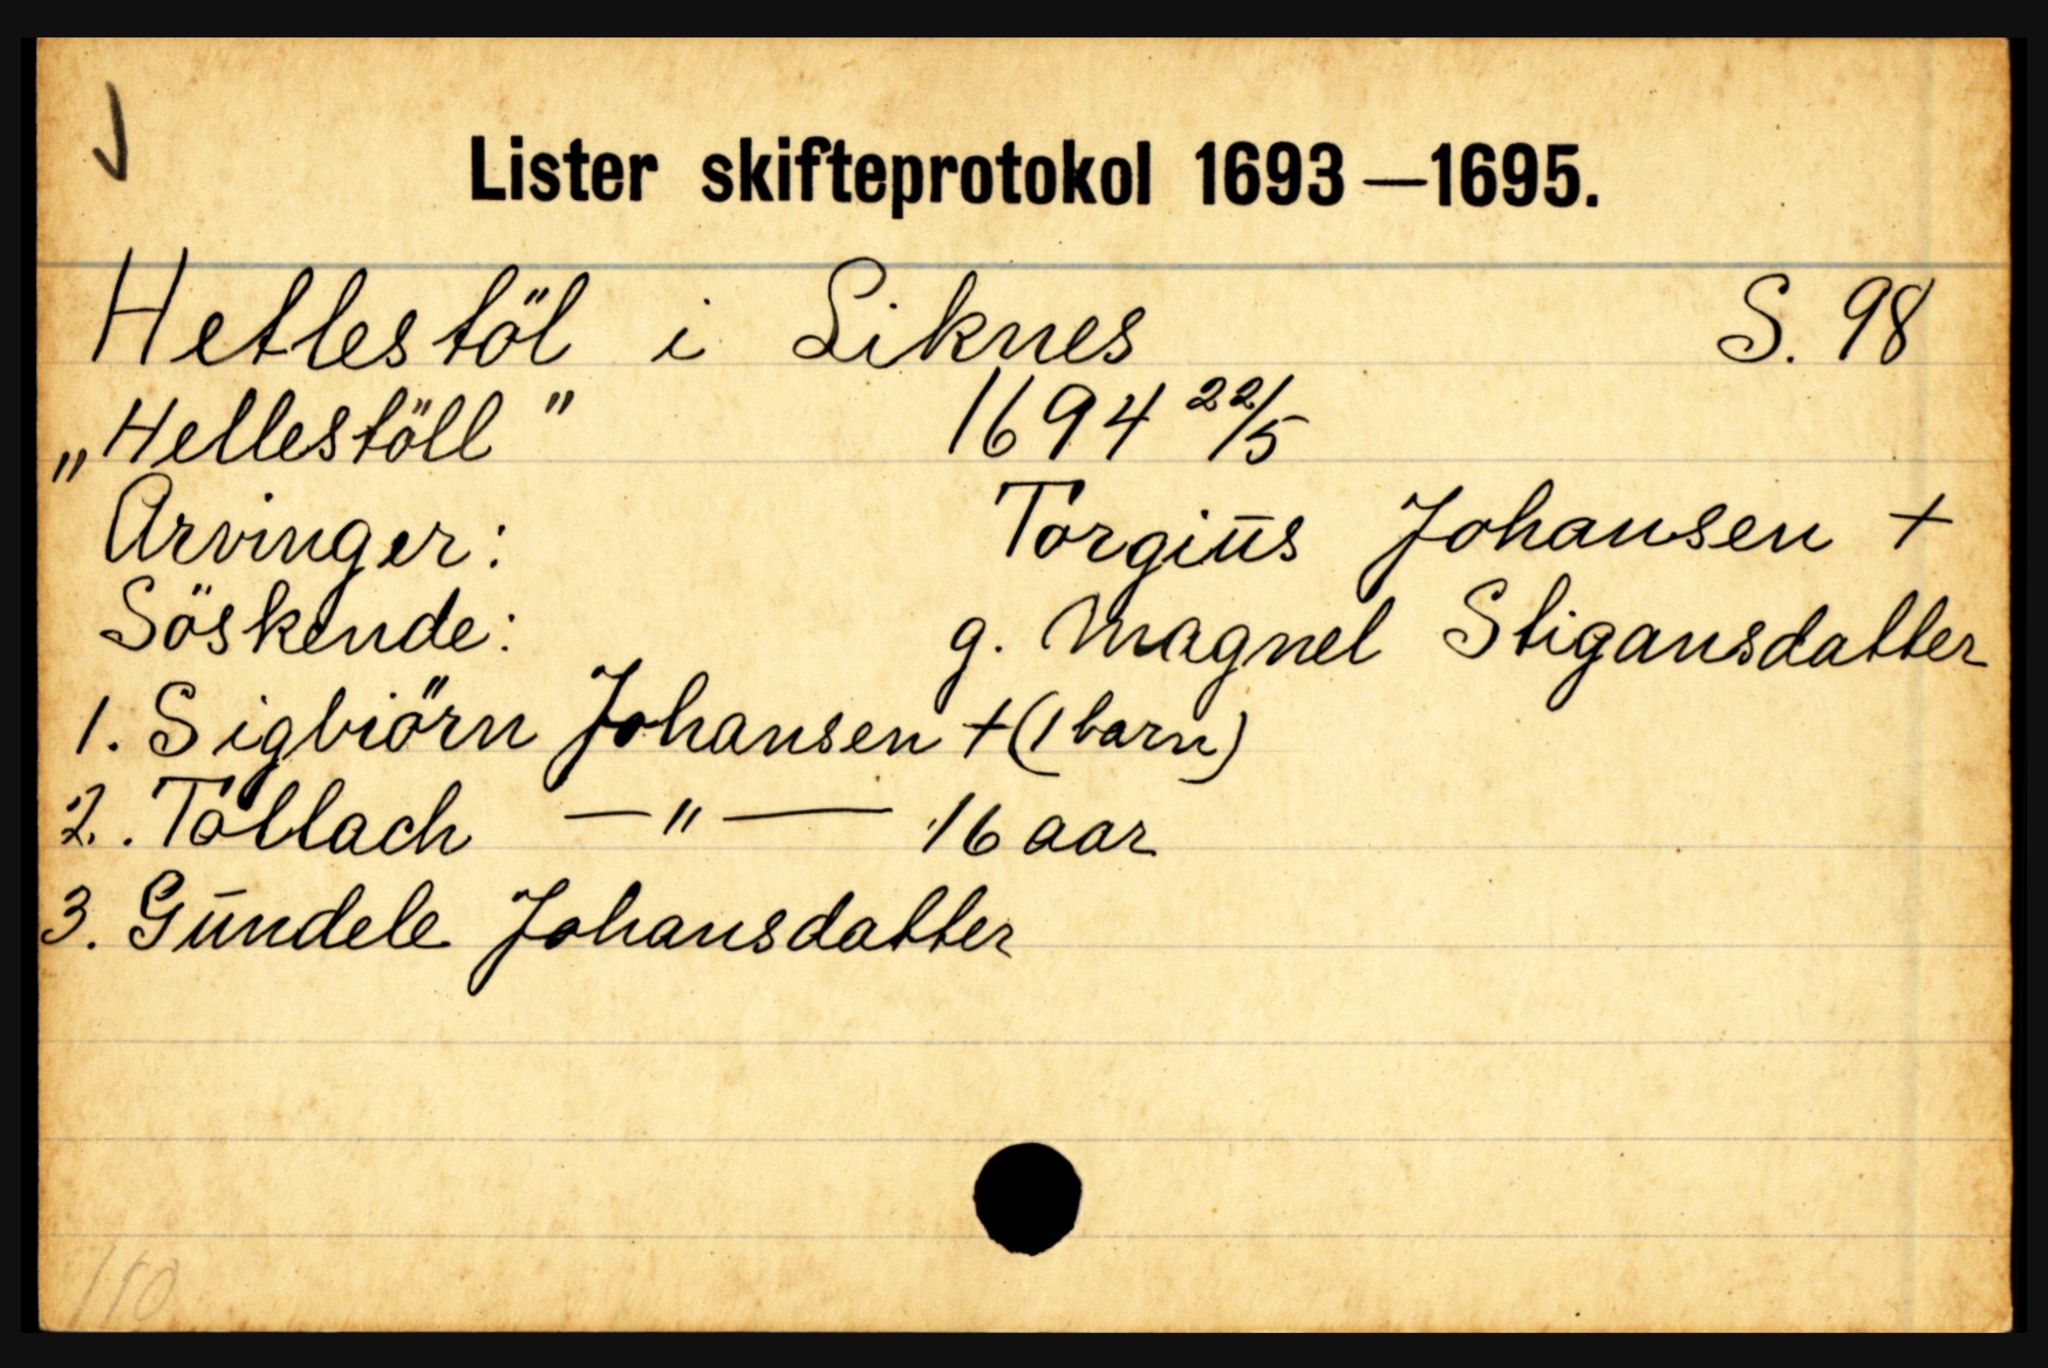 Lister skifteprotokol 1693—1695.
Hetlestöl i Liknes S. 98
„Hellestöll" 1694 22/5
Arvinger: Torgiūs Johansen +
Söskende: g. Magnel Stigansdatter
1. Sigbiörn Johansen + (1 barn)
2. Tollach —"— 16 aar
3. Gūndele Johansdatter
110